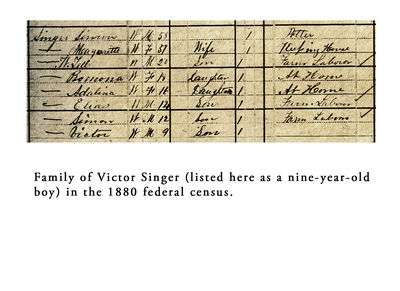 Singer Simon W M 53 1 Potter
— Margarette W F 51 Wife 1 Keeping House
— W. W M 22 Son 1 Farm Laborer
— Romona W F 18 Daughter 1 At Home
— Adalina W F 16 Daughter 1 At Home
— Elias W M 14 Son 1 Farm Labor
— Simon W M 12 Son 1 Farm Labor
— Victor W M 9 Son
Family of Victor Singer (listed here as a nine-year-old
boy) in the 1880 federal census.